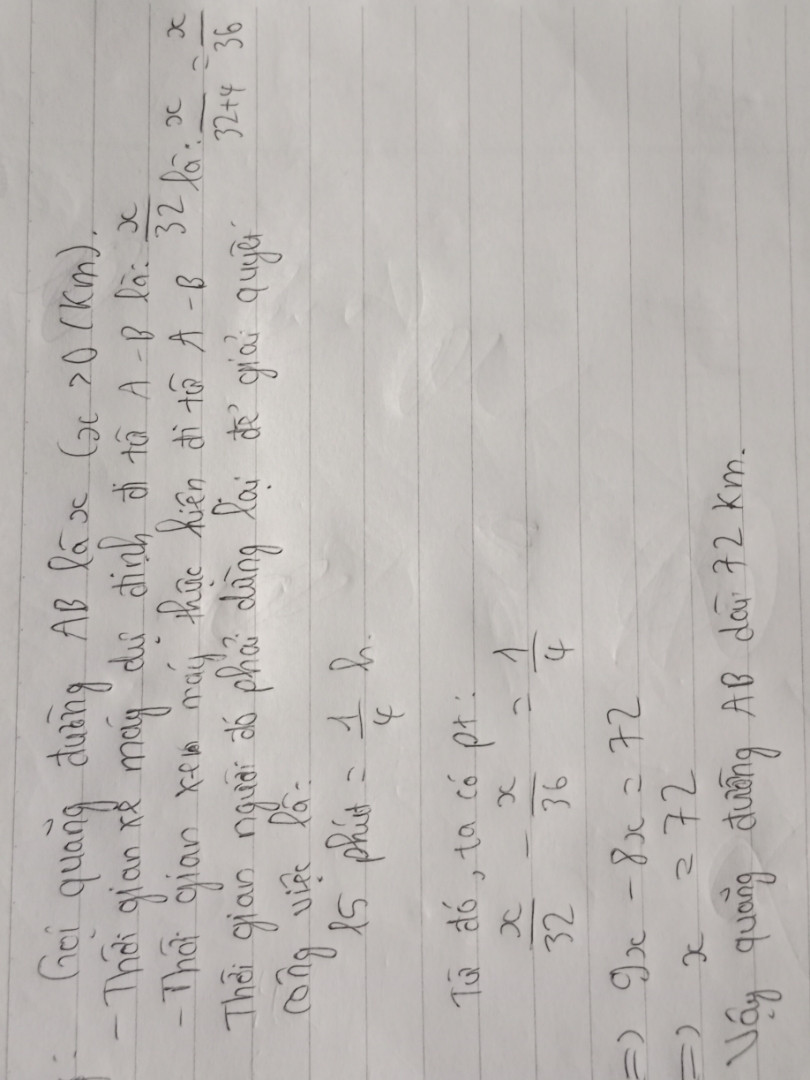 Gọi quãng đường AB là x (x > 0 (Km).
- Thời gian xe máy dự định đi từ A - B là: x/32
- Thời gian xem máy thực hiện đi từ A - B là: x/32+4 = x/36
Thời gian người đó phải dừng lại để giải quyết
công việc là:
15 phút = 1/4 h.
Từ đó, ta có pt:
x/32 - x/36 = 1/4
=> 9x - 8x = 72
=> x = 72
Vậy quãng đường AB dài 72 km.